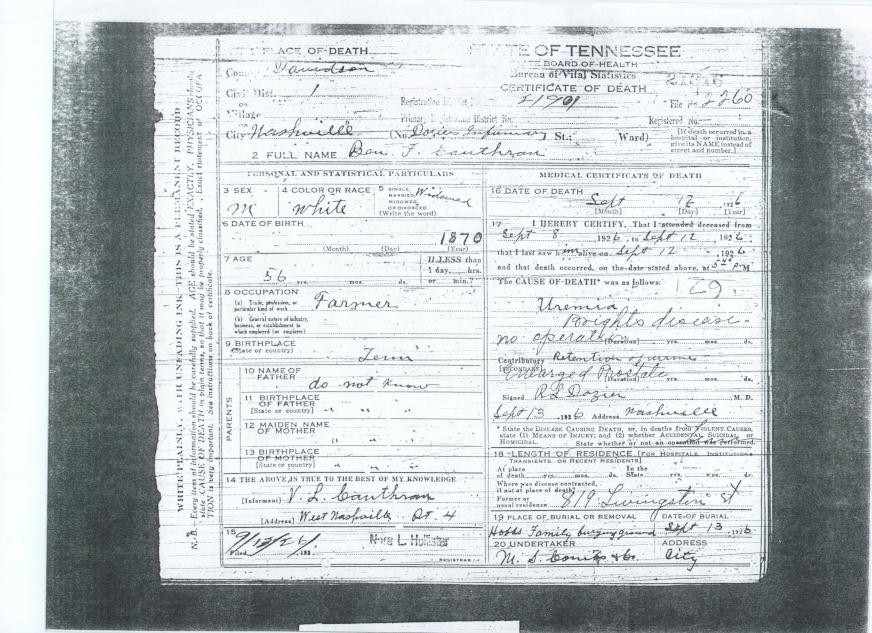 PLACE OF DEATH
County Davidson
Civil Dist. 1
Village
City Nashville (No. Doziers Infirmary St.; Ward)
[If death occurred in a hospital or institution, give its NAME instead of street and number.]
STATE OF TENNESSEE
STATE BOARD OF HEALTH
Bureau of Vital Statistics
CERTIFICATE OF DEATH
Registration District No.
Primary Registration District No.
File No. 2260
Registered No.
2 FULL NAME Ben. F. Cauthran
PERSONAL AND STATISTICAL PARTICULARS
3 SEX
M
4 COLOR OR RACE
White
5 SINGLE, MARRIED, WIDOWED, OR DIVORCED
(Write the word)
Widowed
6 DATE OF BIRTH
1870
(Month) (Day) (Year)
7 AGE
56 yrs. mos. ds.
If LESS than
1 day, hrs.
or min.?
8 OCCUPATION
(a) Trade, profession, or
particular kind of work
Farmer
(b) General nature of industry,
business, or establishment in
which employed (or employer)
9 BIRTHPLACE
(State or country)
Tenn
PARENTS
10 NAME OF
FATHER
do not know
11 BIRTHPLACE
OF FATHER
[State or country] " " "
12 MAIDEN NAME
OF MOTHER "
13 BIRTHPLACE
OF MOTHER
[State or country] " " "
14 THE ABOVE IS TRUE TO THE BEST OF MY KNOWLEDGE
[Informant] V. L. Cauthran
[Address] West Nashville Rt. 4
15
Filed
Nora L. Hollister
REGISTRAR
MEDICAL CERTIFICATE OF DEATH
16 DATE OF DEATH
Sept 12 1926
(Month) (Day) (Year)
17 I HEREBY CERTIFY, That I attended deceased from
Sept 8 1926, to Sept 12, 1926,
that I last saw him alive on Sept 12, 1926
and that death occurred, on the date stated above, at P M
The CAUSE OF DEATH* was as follows:
129.
Uremia
Brights disease.
no operation (Duration) yrs. mos. ds.
Contributory Retention of urine
[SECONDARY]
Enlarged Prostate
(Duration) yrs. mos. ds.
Signed R L Dozier M. D.
Sept 13, 1926 Address Nashville
* State the DISEASE CAUSING DEATH, or, in deaths from VIOLENT CAUSES,
state (1) MEANS OF INJURY; and (2) whether ACCIDENTAL, SUICIDAL, or
HOMICIDAL. State whether or not an operation was performed.
18 LENGTH OF RESIDENCE [FOR HOSPITALS, INSTITUTIONS,
TRANSIENTS, OR RECENT RESIDENTS]
At place
of death yrs. mos. ds.
In the
State yrs. mos. ds.
Where was disease contracted,
if not at place of death?
Former or
usual residence 819 Livingston St
19 PLACE OF BURIAL OR REMOVAL
Hobbs Family burying ground
DATE OF BURIAL
Sept 13, 1926
20 UNDERTAKER
M. S. Combs & Co.
ADDRESS
City
WRITE PLAINLY, WITH UNFADING INK—THIS IS A PERMANENT RECORD
N. B.—Every item of information should be carefully supplied. AGE should be stated EXACTLY. PHYSICIANS should
state CAUSE OF DEATH in plain terms, so that it may be properly classified. Exact statement of OCCUPA-
TION is very important. See instructions on back of certificate.